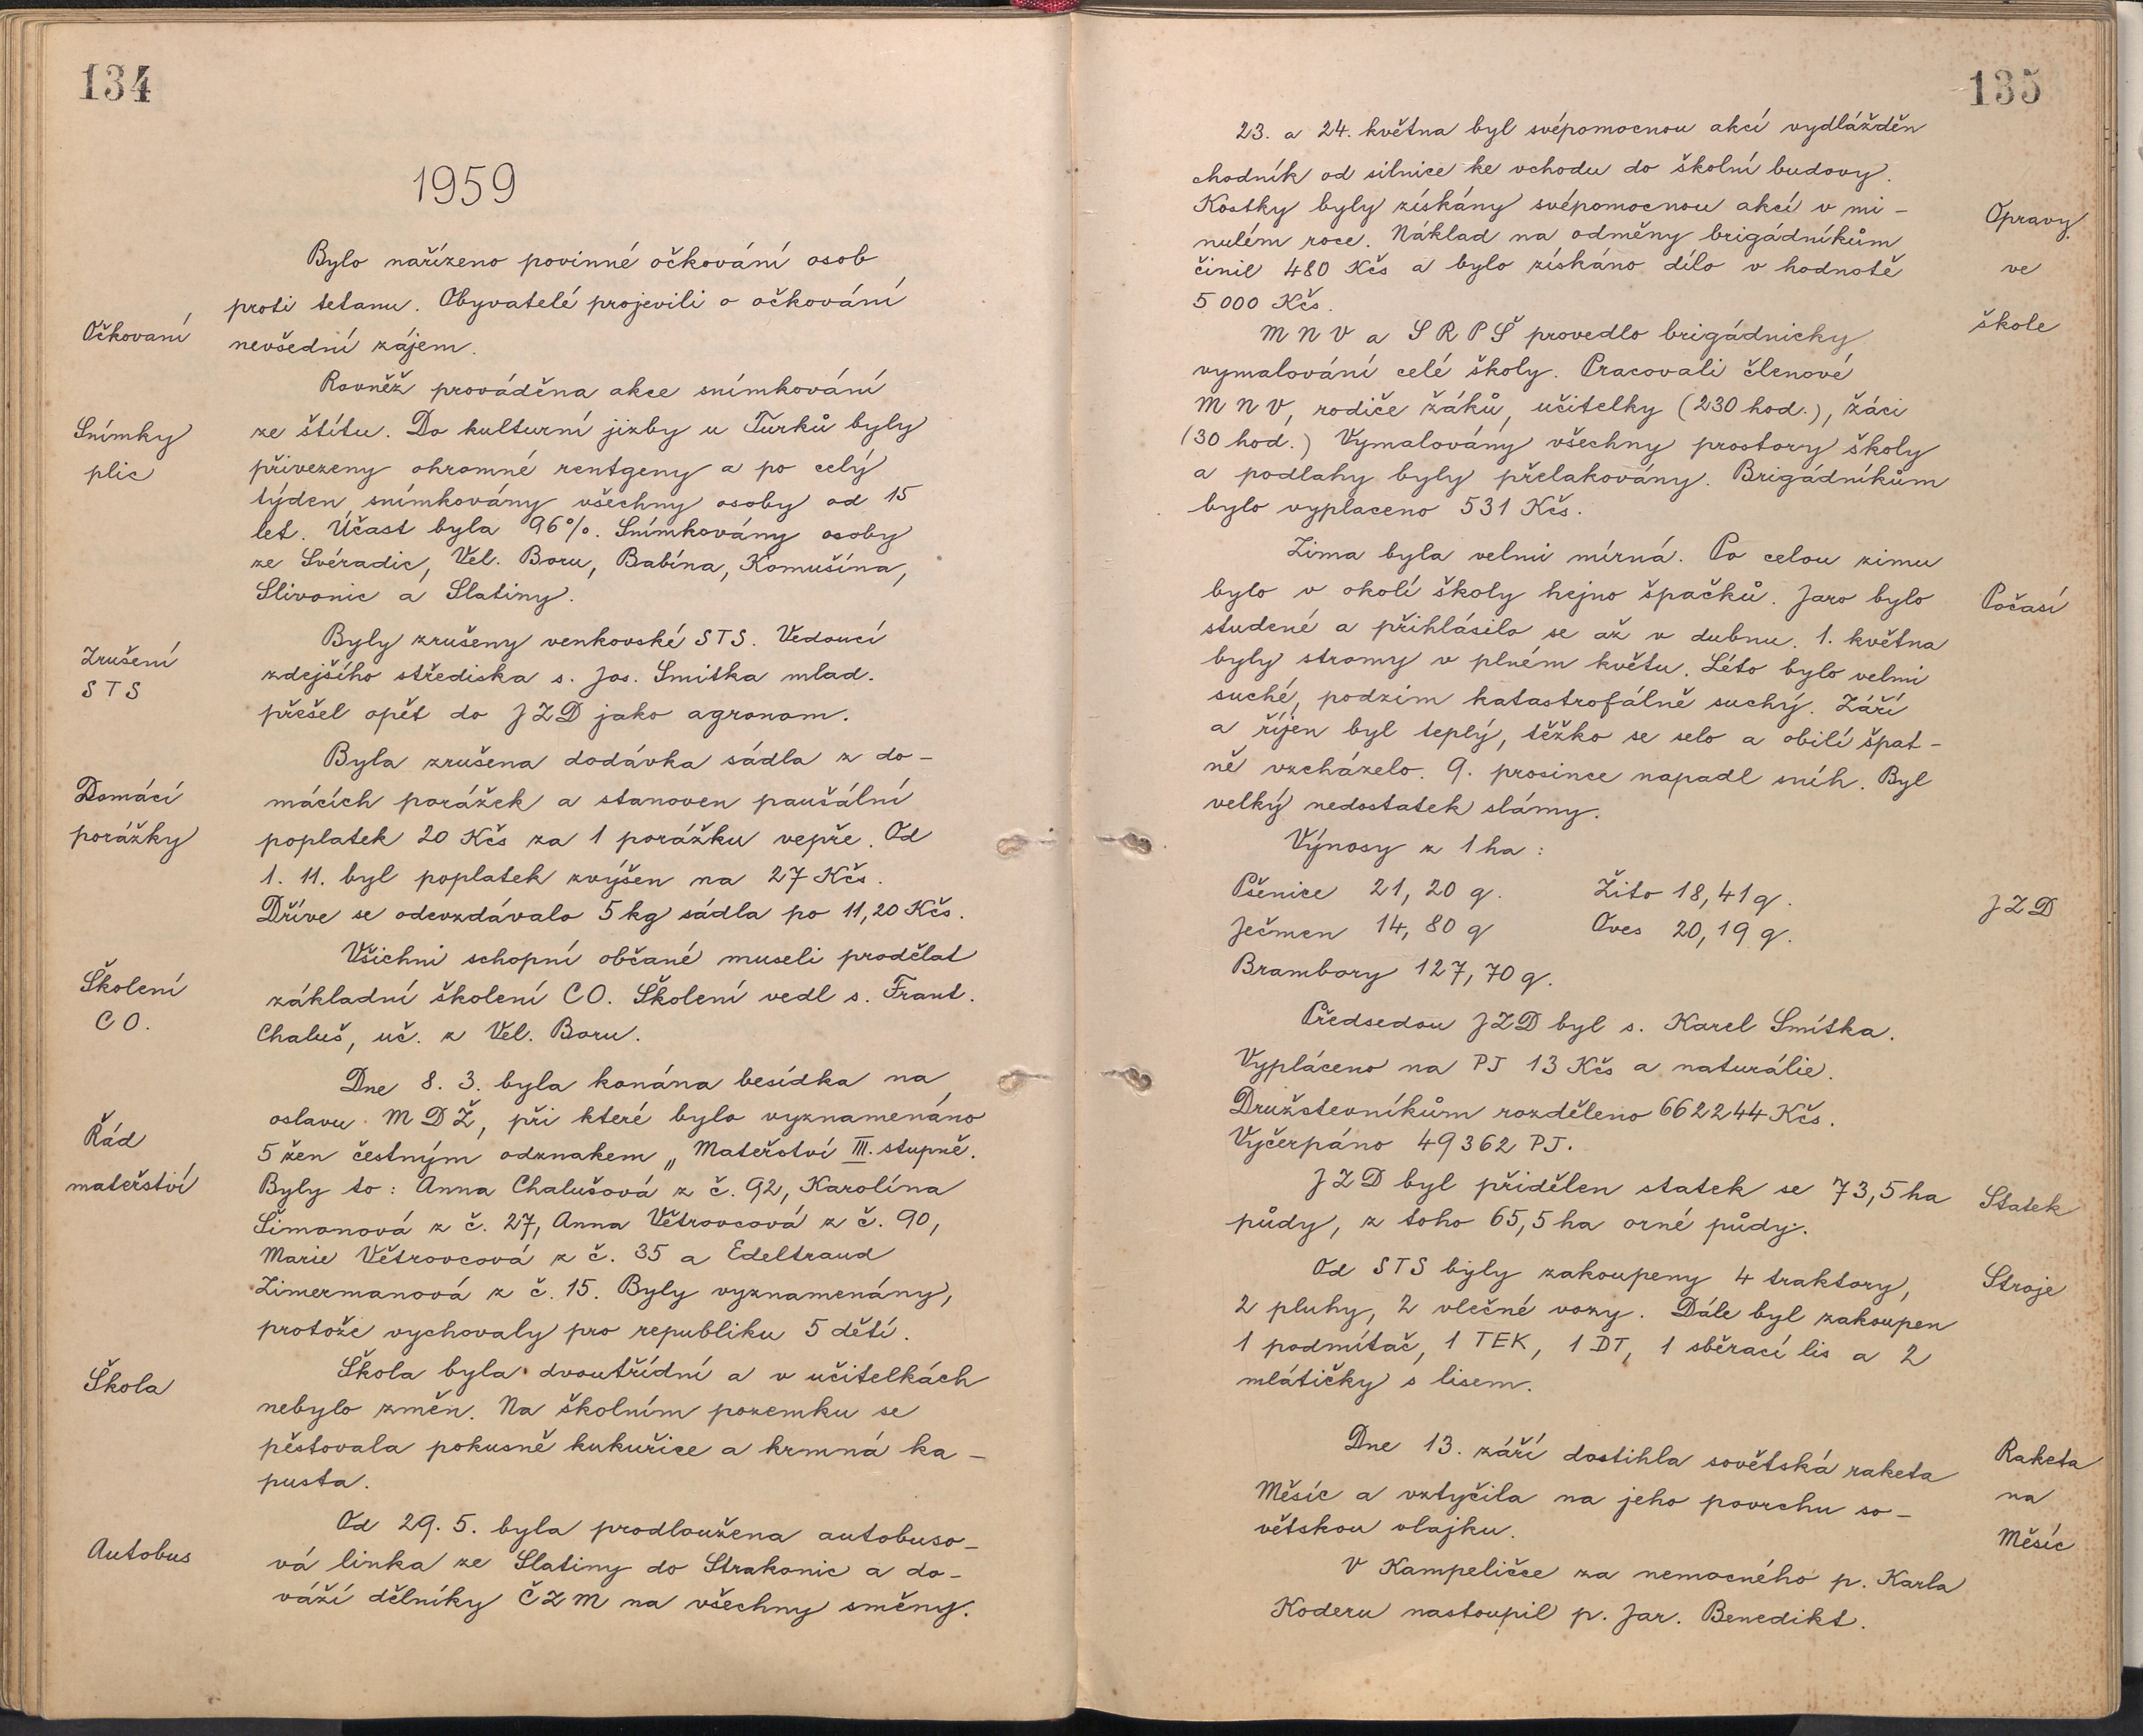 134
1959
Bylo nařízeno povinné očkování osob
proti tetanu. Obyvatelé projevili o očkování
Očkovaní
nevšední zájem.
Rovněž prováděna akce snímkování
Snímky
plic
ze štítu. Do kulturní jizby u Turků byly
přivezeny ohromné rentgeny a po celý
týden snímkovány všechny osoby od 15
let. Účast byla 96%. Snímkovány osoby
ze Svéradic, Vel. Boru, Babína, Komušína,
Slivonic a Slatiny.
Zrušení
STS
Byly zrušeny venkovské STS. Vedoucí
zdejšího střediska s. Jos. Smitka mlad.
přešel opět do JZD jako agronom.
Domácí
porážky
Byla zrušena dodávka sádla z do-
mácích porážek a stanoven paušální
poplatek 20 Kčs za 1 porážku vepře. Od
1. 11. byl poplatek zvýšen na 27 Kčs.
Dříve se odevzdávalo 5 kg sádla po 11,20 Kčs.
Školení
CO.
Všichni schopní občané museli prodělat
základní školení CO. Školení vedl s. Frant.
Chaluš, uč. z Vel. Boru.
Řád
mateřství
Dne 8. 3. byla konána besídka na
oslavu MDŽ, při které bylo vyznamenáno
5 žen čestným odznakem „Mateřství III. stupně.
Byly to: Anna Chalušová z č. 92, Karolína
Šimonová z č. 27, Anna Větrovcová z č. 90,
Marie Větrovcová z č. 35 a Edeltraud
Zimermanová z č. 15. Byly vyznamenány,
protože vychovaly pro republiku 5 dětí.
Škola
Škola byla dvoutřídní a v učitelkách
nebylo změn. Na školním pozemku se
pěstovala pokusně kukuřice a krmná ka-
pusta.
Autobus
Od 29. 5. byla prodloužena autobuso-
vá linka ze Slatiny do Strakonic a do-
váží dělníky ČZM na všechny směny.
135
23. a 24. května byl svépomocnou akcí vydlážděn
chodník od silnice ke vchodu do školní budovy.
Kostky byly získány svépomocnou akcí v mi-
nulém roce. Náklad na odměny brigádníkům
činil 480 Kčs a bylo získáno dílo v hodnotě
5 000 Kčs.
Opravy
ve
škole
MNV a SRPŠ provedlo brigádnicky
vymalování celé školy. Pracovali členové
MNV, rodiče žáků, učitelky (230 hod.), žáci
(30 hod.) Vymalovány všechny prostory školy
a podlahy byly přelakovány. Brigádníkům
bylo vyplaceno 531 Kčs.
Zima byla velmi mírná. Po celou zimu
bylo v okolí školy hejno špačků. Jaro bylo
Počasí
studené a přihlásilo se až v dubnu. 1. května
byly stromy v plném květu. Léto bylo velmi
suché, podzim katastrofálně suchý. Září
a říjen byl teplý, těžko se selo a obilí špat-
ně vzcházelo. 9. prosince napadl sníh. Byl
velký nedostatek slámy.
Výnosy z 1 ha:
Pšenice 21,20 q. Žito 18,41 q.
JZD
Ječmen 14,80 q Oves 20,19 q.
Brambory 127,70 q.
Předsedou JZD byl s. Karel Smítka.
Vypláceno na PJ 13 Kčs a naturálie.
Družstevníkům rozděleno 662244 Kčs.
Vyčerpáno 49362 PJ.
JZD byl přidělen statek se 73,5 ha
Statek
půdy, z toho 65,5 ha orné půdy.
Od STS byly zakoupeny 4 traktory,
Stroje
2 pluhy, 2 vlečné vozy. Dále byl zakoupen
1 podmítač, 1 TEK, 1 DT, 1 sběrací lis a 2
mlátičky s lisem.
Dne 13. září dostihla sovětská raketa
Raketa
na
Měsíc
Měsíc a vztyčila na jeho povrchu so-
větskou vlajku.
V Kampeličce za nemocného p. Karla
Koderu nastoupil p. Jar. Benedikt.